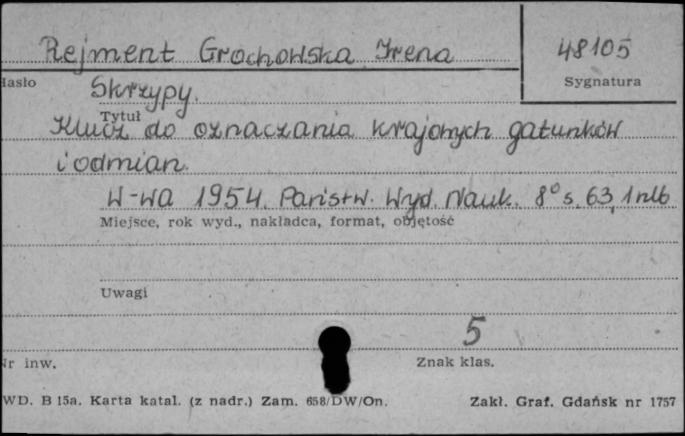 Rejment Grochowska Irena
48105
Hasło
Sygnatura
Skrzypy.
Tytuł
Klucz do oznaczania krajowych gatunków
i odmian.
W-wa 1954. Państw. Wyd. Nauk. 8° s. 63, 1 nlb
Miejsce, rok wyd., nakładca, format, objętość
Uwagi
5
Nr inw.
Znak klas.
WD. B 15a. Karta katal. (z nadr.) Zam. 658/DW/On.
Zakł. Graf. Gdańsk nr 1757